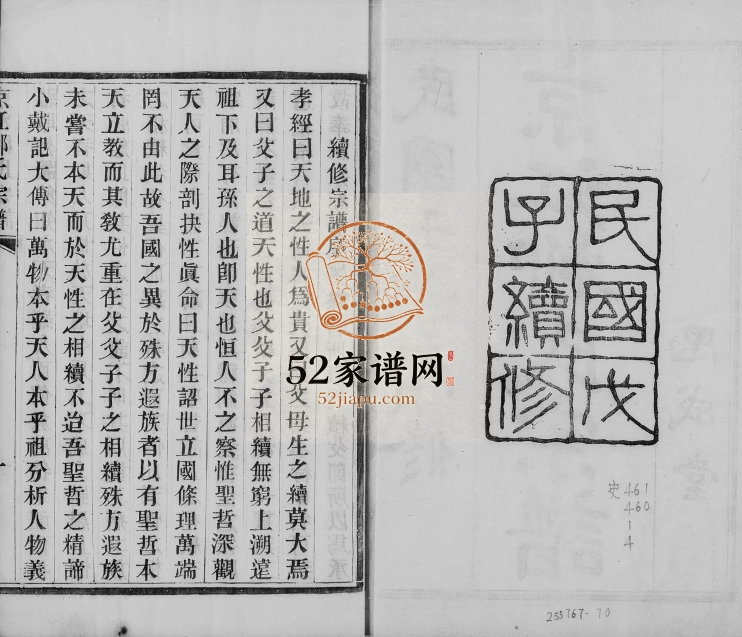 民國戊
子續修
史 461
460
1
4
255767-70
續修宗譜序
孝經曰天地之性人爲貴又曰父母生之續莫大焉
又曰父子之道天性也父父子子相續無窮上溯遠
祖下及耳孫人也卽天也恒人不之察惟聖哲深觀
天人之際剖抉性眞命曰天性詔世立國條理萬端
罔不由此故吾國之異於殊方遐族者以有聖哲本
天立教而其教尤重在父父子子之相續殊方遐族
未嘗不本天而於天性之相續不迨吾聖哲之精諦
小戴記大傳曰萬物本乎天人本乎祖分析人物義
江氏宗譜
52家谱网
52jiapu.com